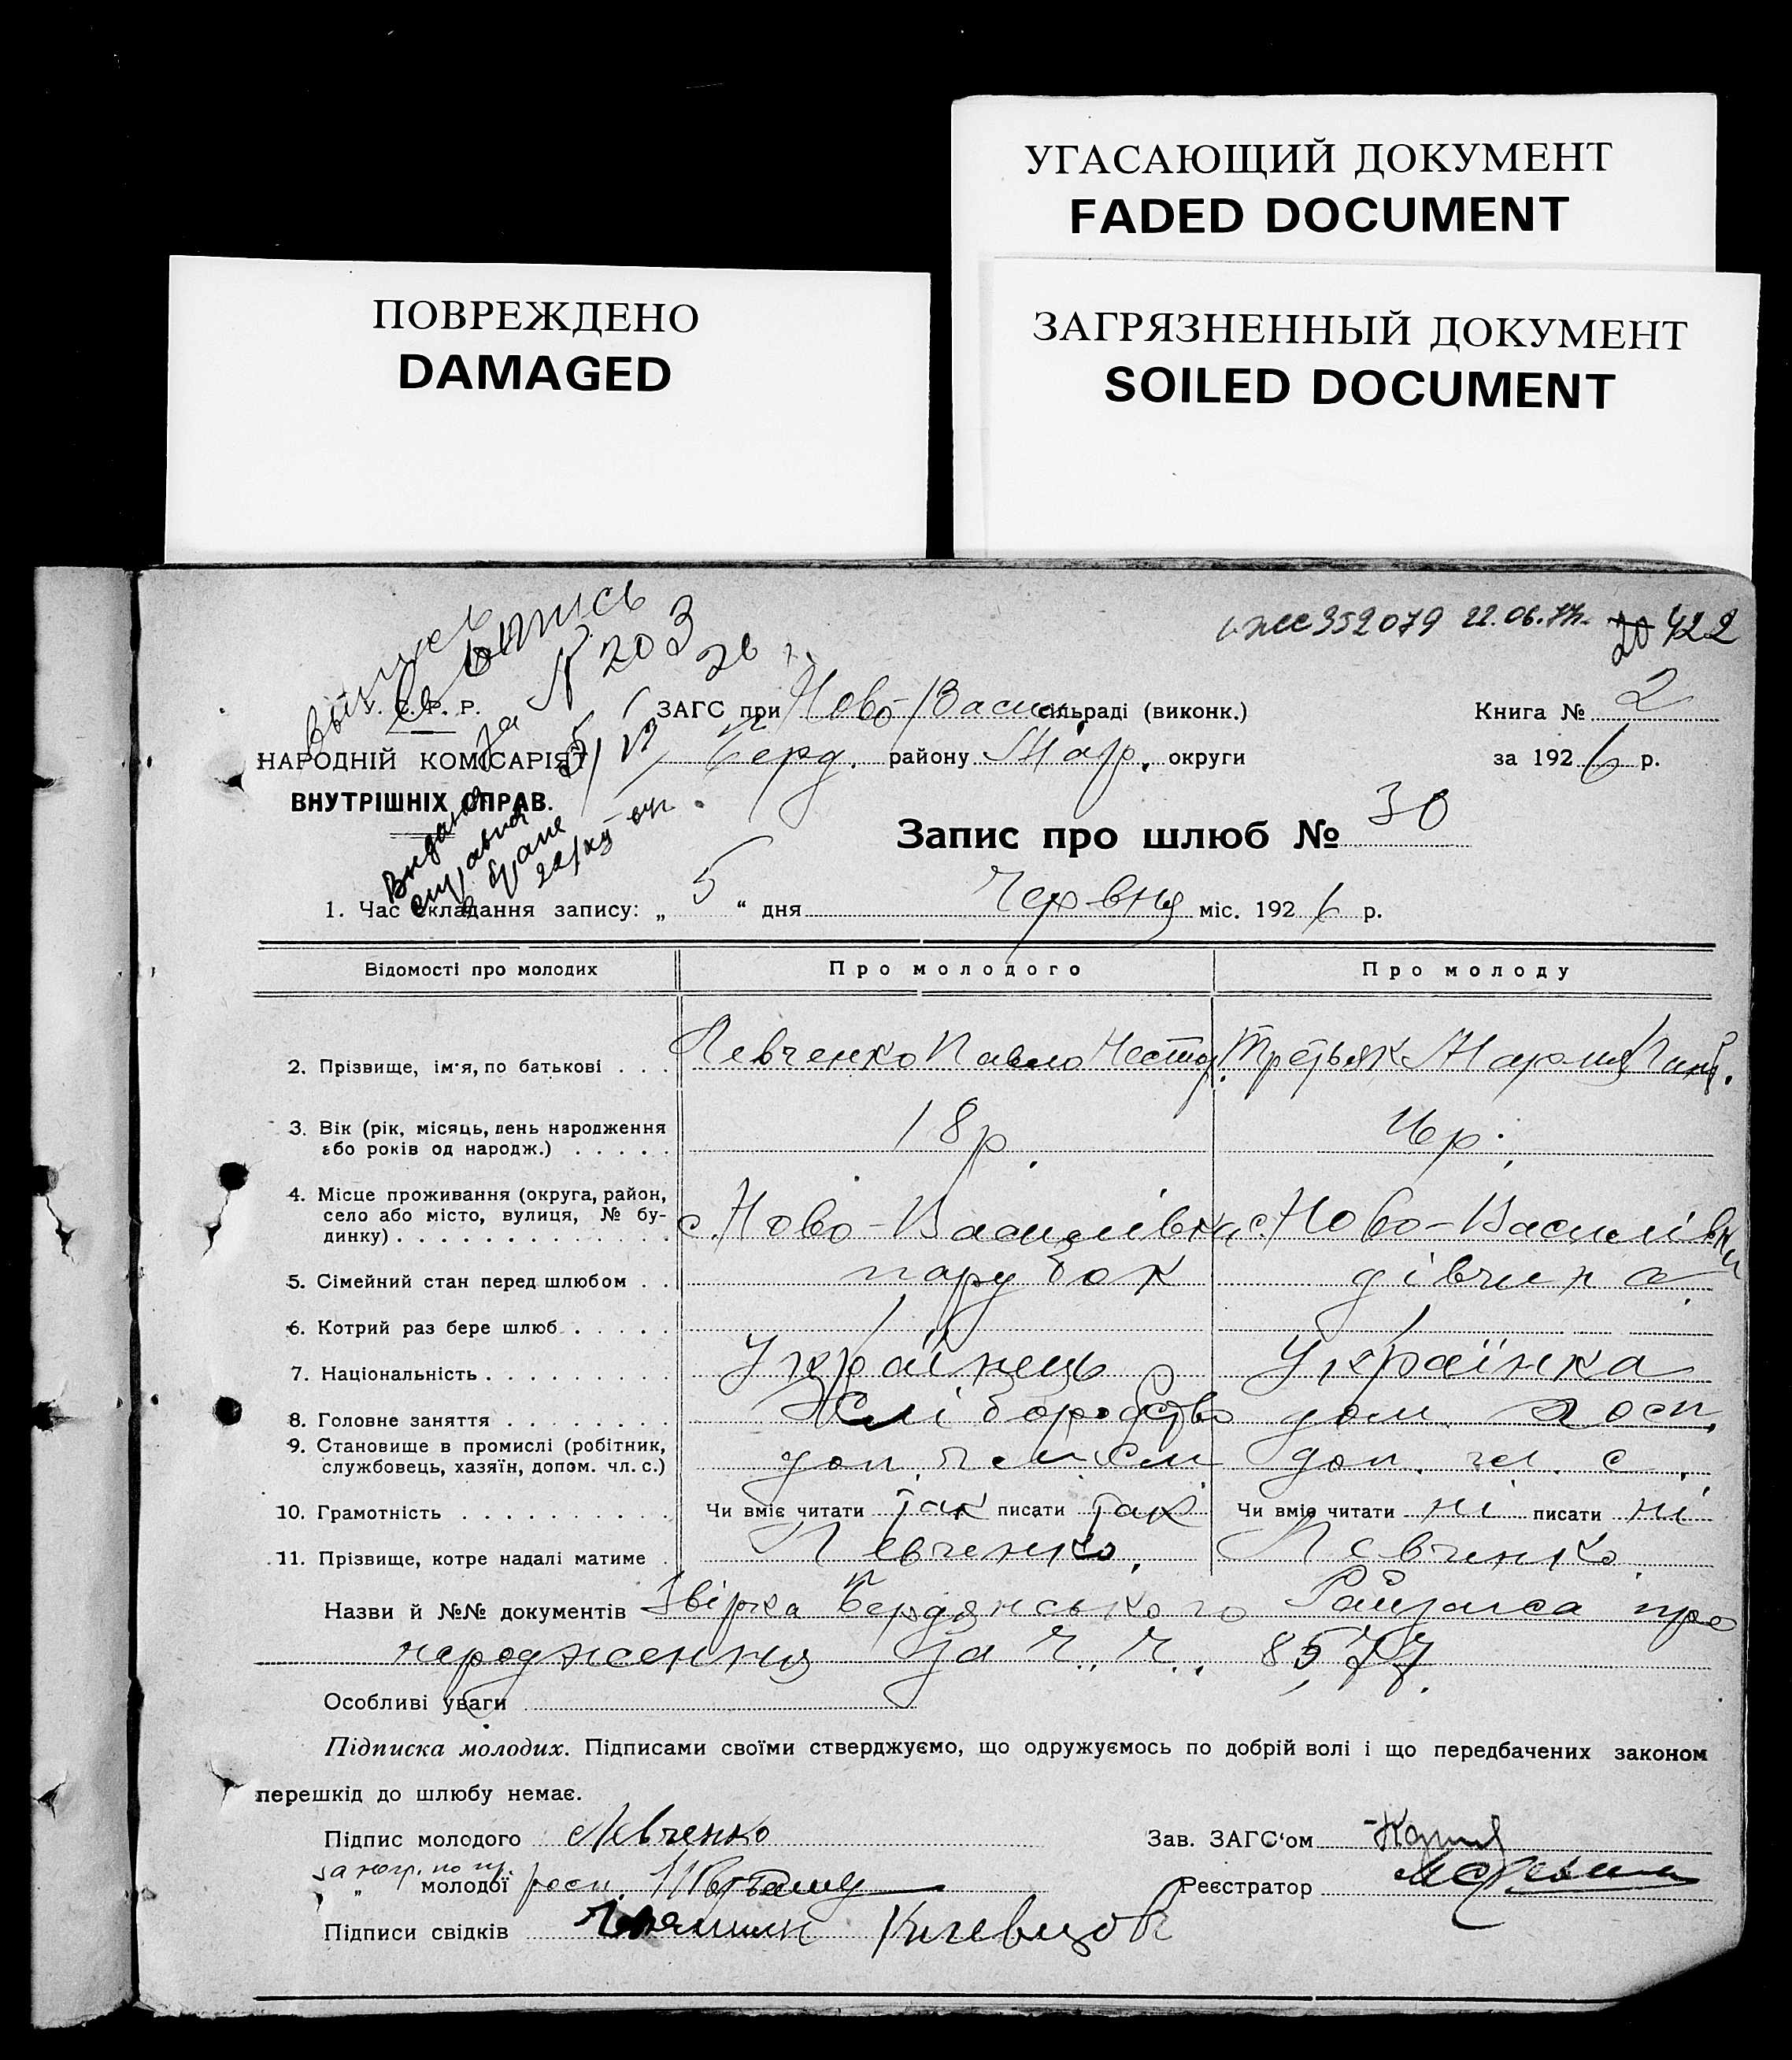 УГАСАЮЩИЙ ДОКУМЕНТ
FADED DOCUMENT
ПОВРЕЖДЕНО
DAMAGED
ЗАГРЯЗНЕННЫЙ ДОКУМЕНТ
SOILED DOCUMENT
352079 22.06.77г. 20 422
выпись
за № 203
С. Р. Р.
НАРОДНІЙ КОМІСАРІЯТ
ВНУТРІШНІХ СПРАВ.
ЗАГС при Ново-Васил. сільраді (виконк.)
Берд. району Мар. округи
Книга № 2
за 1926 р.
Запис про шлюб № 30
1. Час складання запису: „ 5 “ дня Червня міс. 1926 р.
Відомості про молодих Про молодого Про молоду
2. Прізвище, ім'я, по батькові . . . Левченко Павло Нестор. Третьяк Мария Пант.
3. Вік (рік, місяць, день народження
або років од народж.) . . . . . 18 р. 16 р.
4. Місце проживання (округа, район,
село або місто, вулиця, № бу-
динку) . . . . . . . . . . . . . с. Ново-Василівка с. Ново-Василівки
5. Сімейний стан перед шлюбом . . парубок дівчина
6. Котрий раз бере шлюб . . . . . 1 1
7. Національність . . . . . . . . . Українець Українка
8. Головне заняття . . . . . . . . Хліборобство дом. госп.
9. Становище в промислі (робітник,
службовець, хазяїн, допом. чл. с.) доп. член сем дон. чл. с.
10. Грамотність . . . . . . . . . . Чи вміє читати так писати так Чи вміє читати ні писати ні
11. Прізвище, котре надалі матиме . Левченко. Левченко.
Назви й №№ документів Звірка Бердянського Райзагса про
народження за Ч. Ч. 85, 77.
Особливі уваги
Підписка молодих. Підписами своїми стверджуємо, що одружуємось по добрій волі і що передбачених законом
перешкід до шлюбу немає.
Підпис молодого Левченко
Зав. ЗАГС‘ом
за негр. по пр.
„ молодої росп.
Реєстратор
Підписи свідків